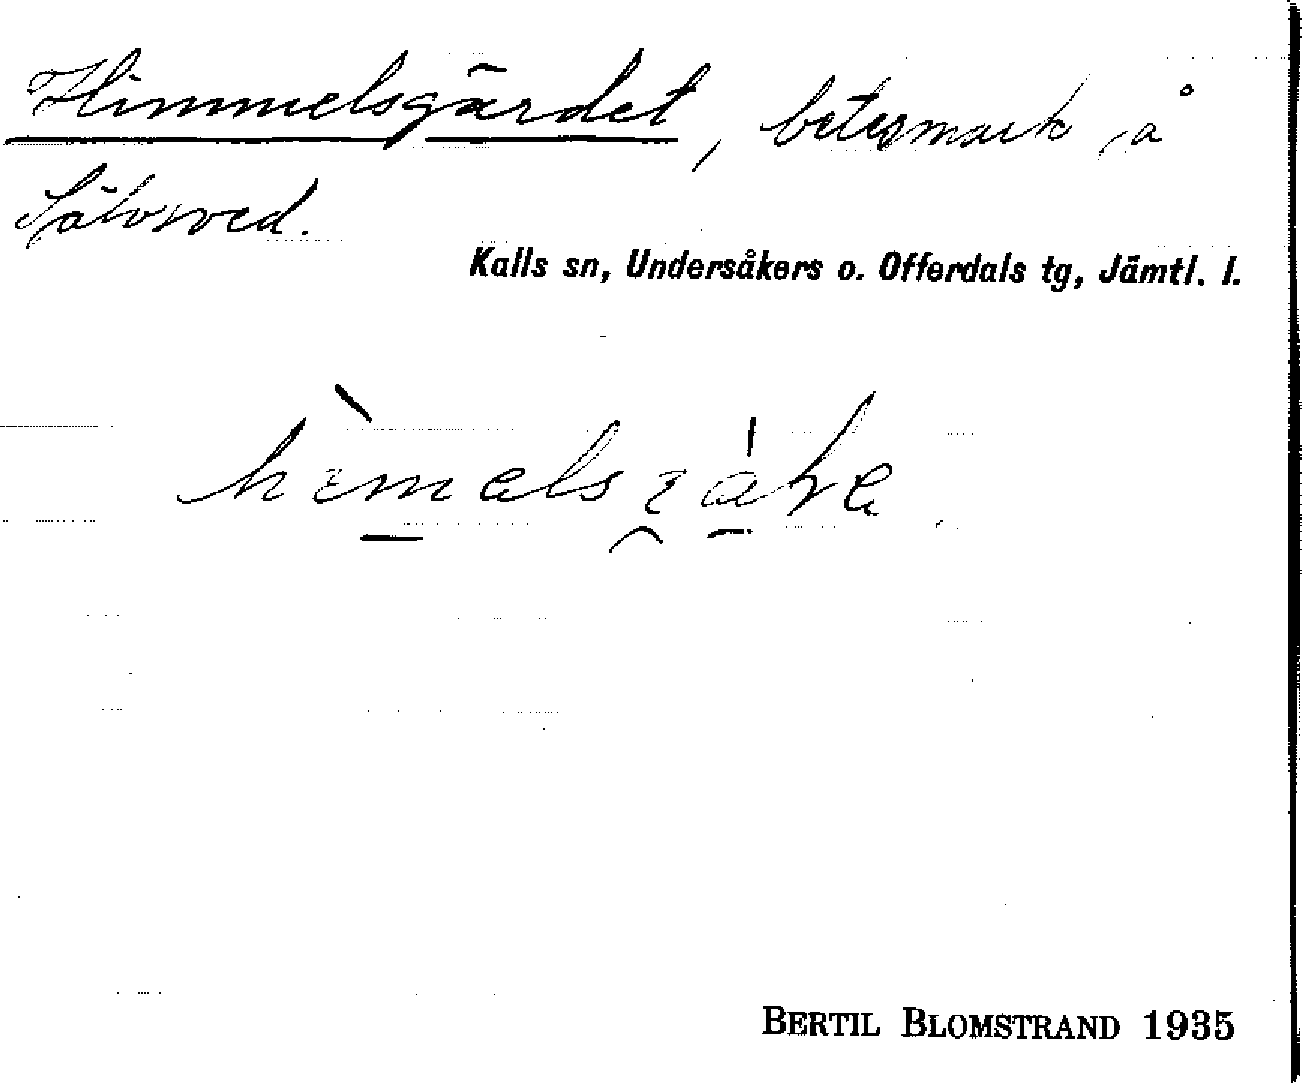 Himmelsgärdet, betesmark å
Sölvsved.
Kalls sn, Undersåkers o. Offerdals tg, Jämtl. l.
BERTIL BLOMSTRAND 1935